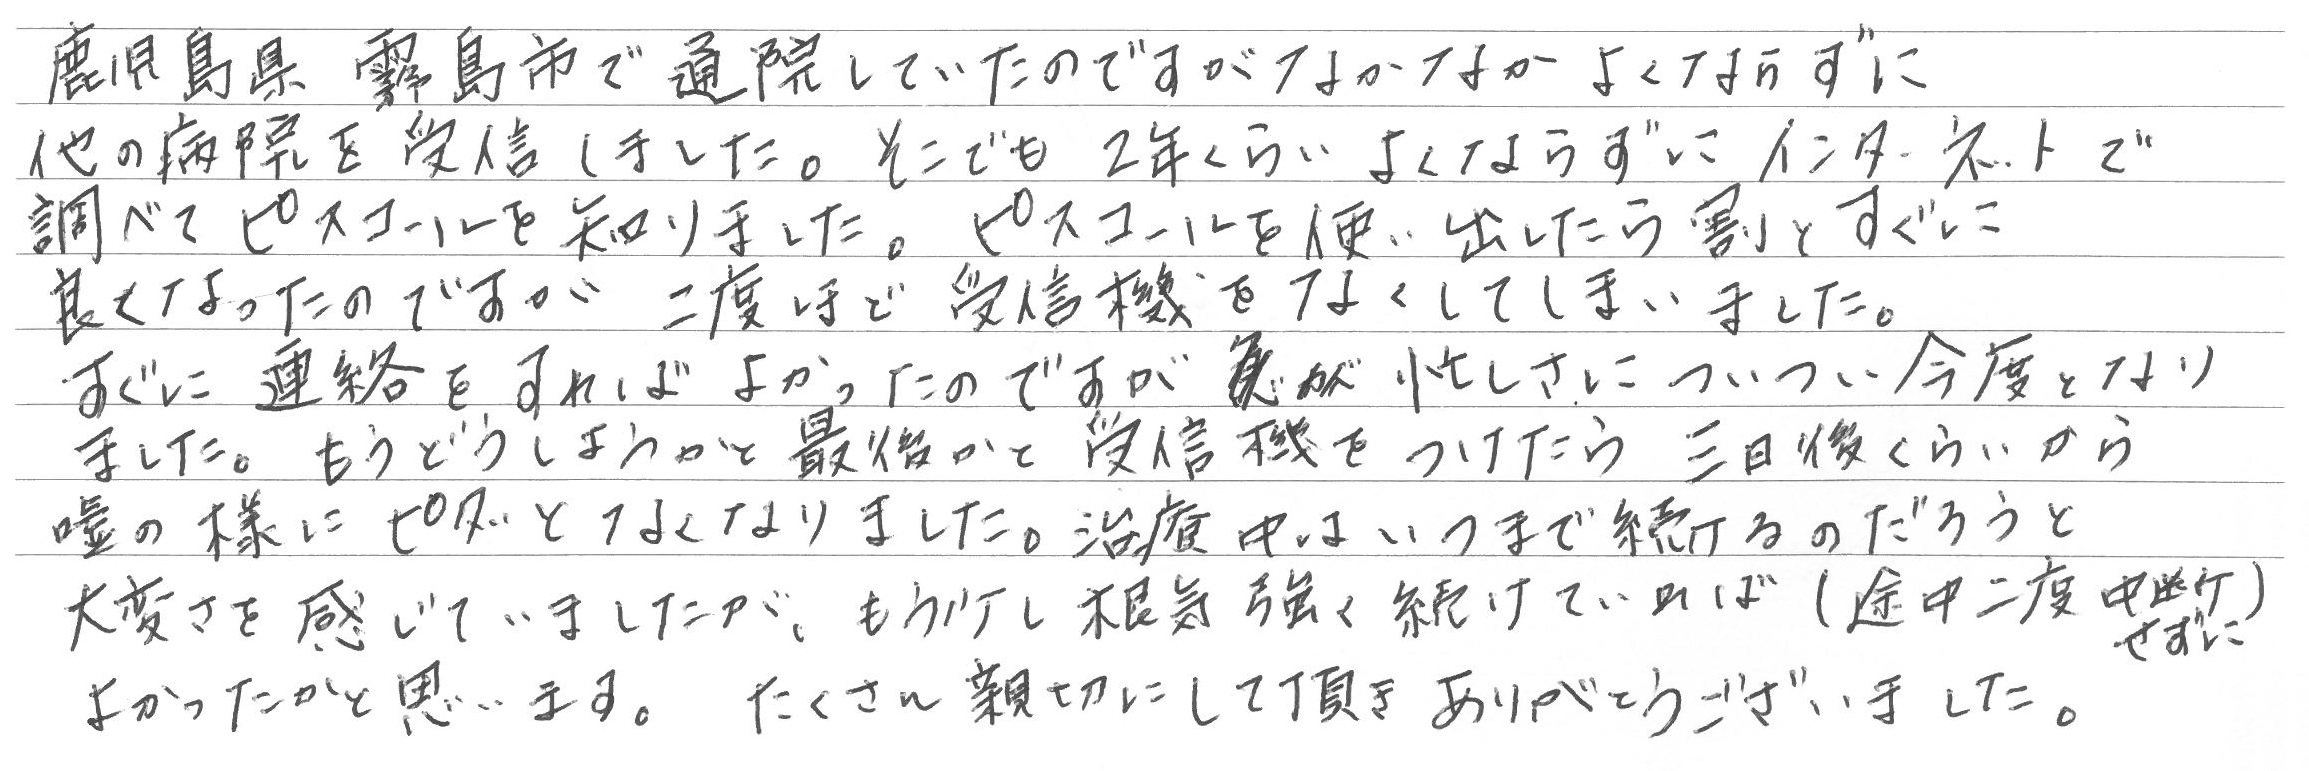 鹿児島県 霧島市で通院していたのですがなかなかよくならずに
他の病院を受信しました。そこでも 2年くらいよくならずにインターネットで
調べてピスコールを知りました。ピスコールを使い出したら割とすぐに
良くなったのですが 二度ほど受信機をなくしてしまいました。
すぐに連絡をすればよかったのですが 忙しさについつい今度となり
ました。もうどうしようかと最後かと受信機をつけたら 三日後くらいから
嘘の様にピタッとなくなりました。治療中はいつまで続けるのだろうと
大変さを感じていましたが、もう少し根気強く続けていれば(途中二度中断
せずに)
よかったかと思います。 たくさん親切にして頂きありがとうございました。